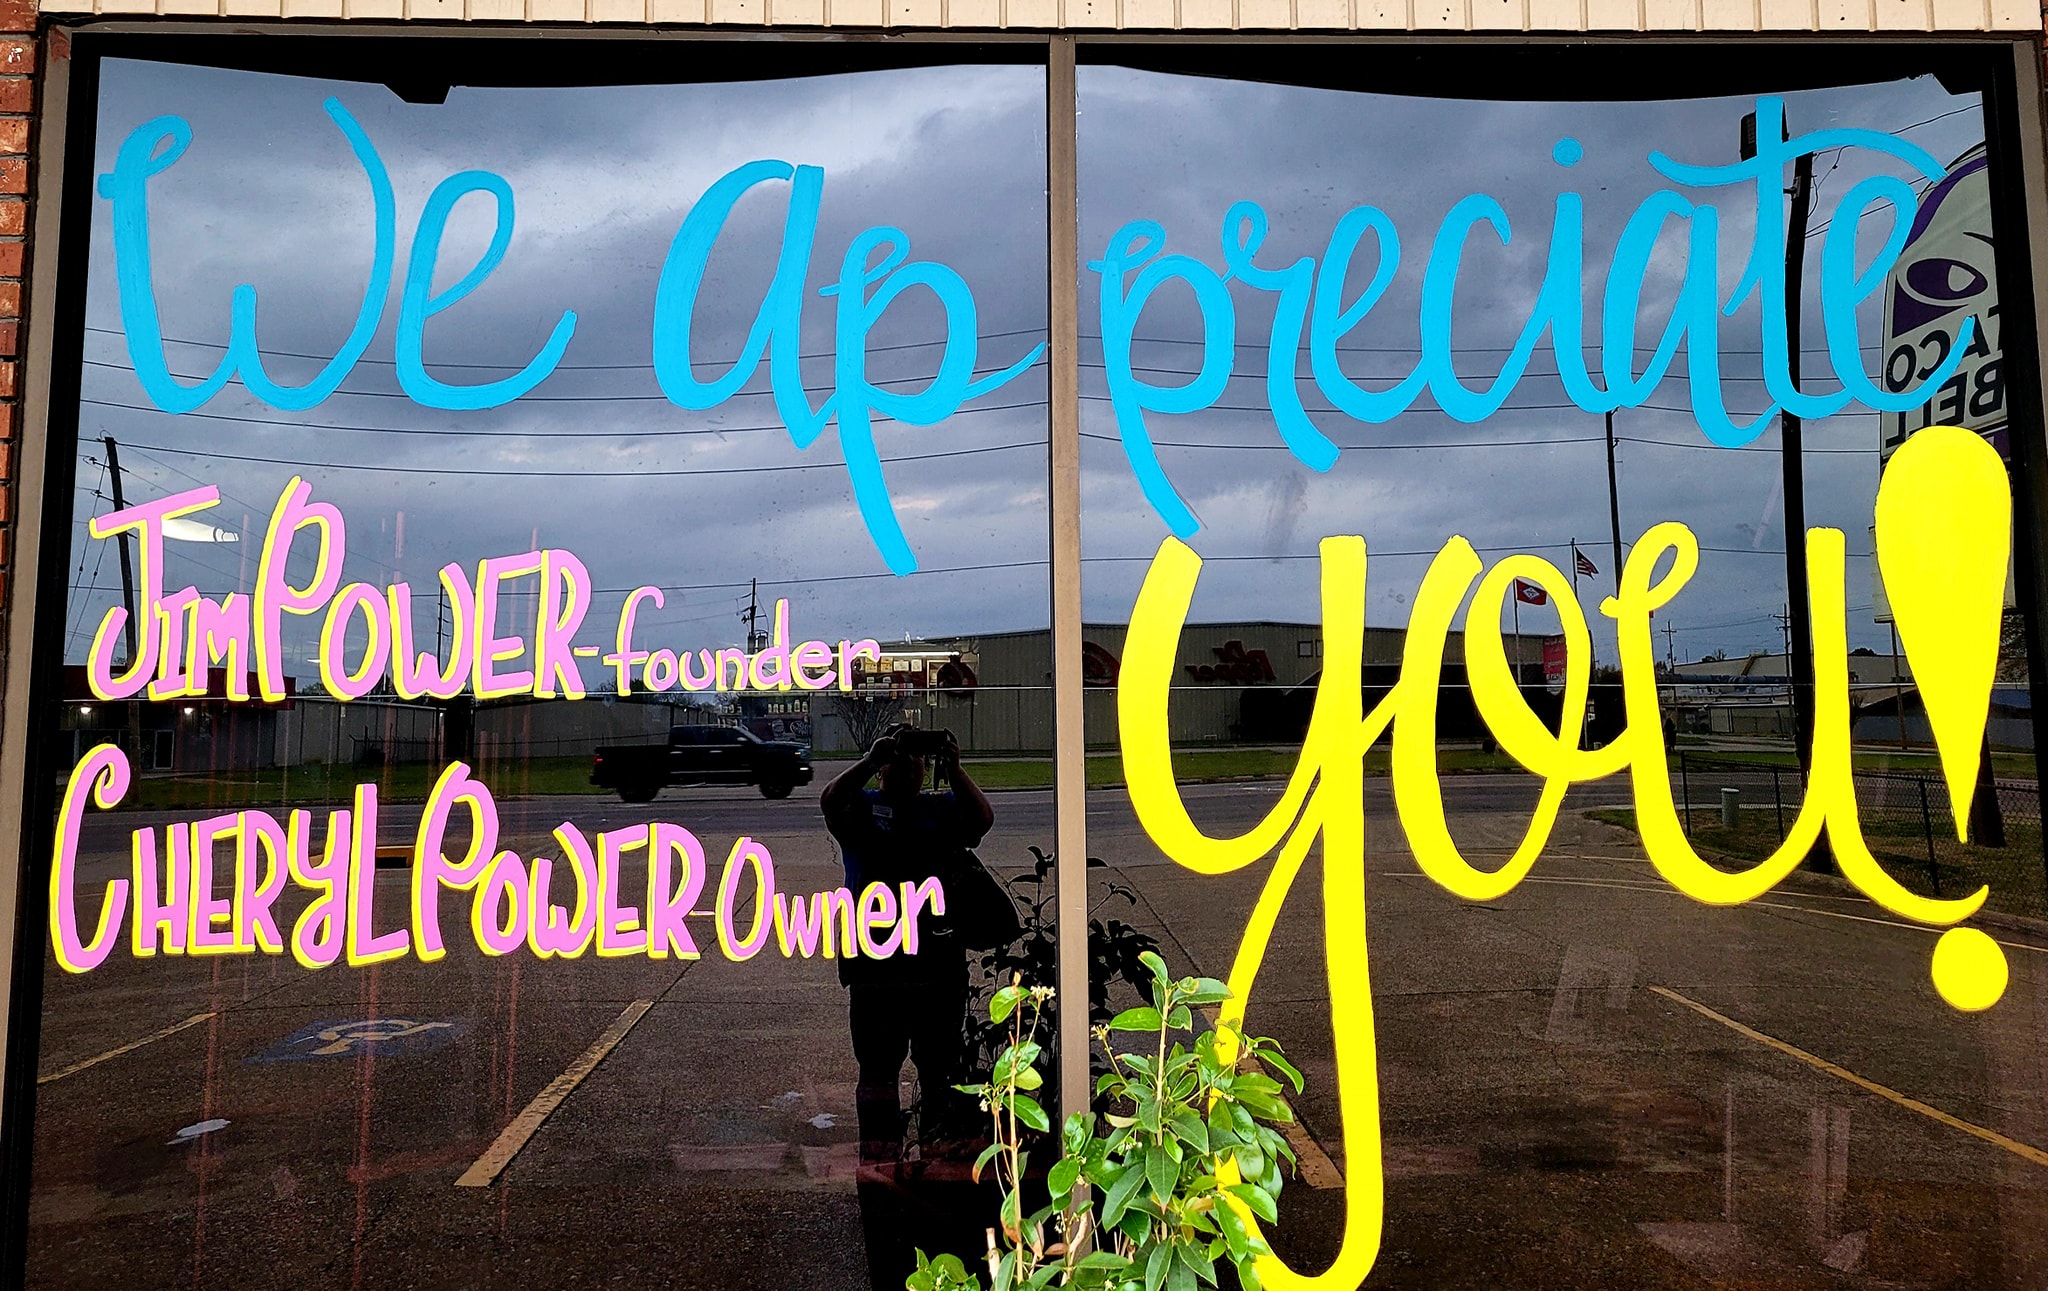 We appreciate
you!
Jim Power-founder
Cheryl Power-Owner
TACO
BELL